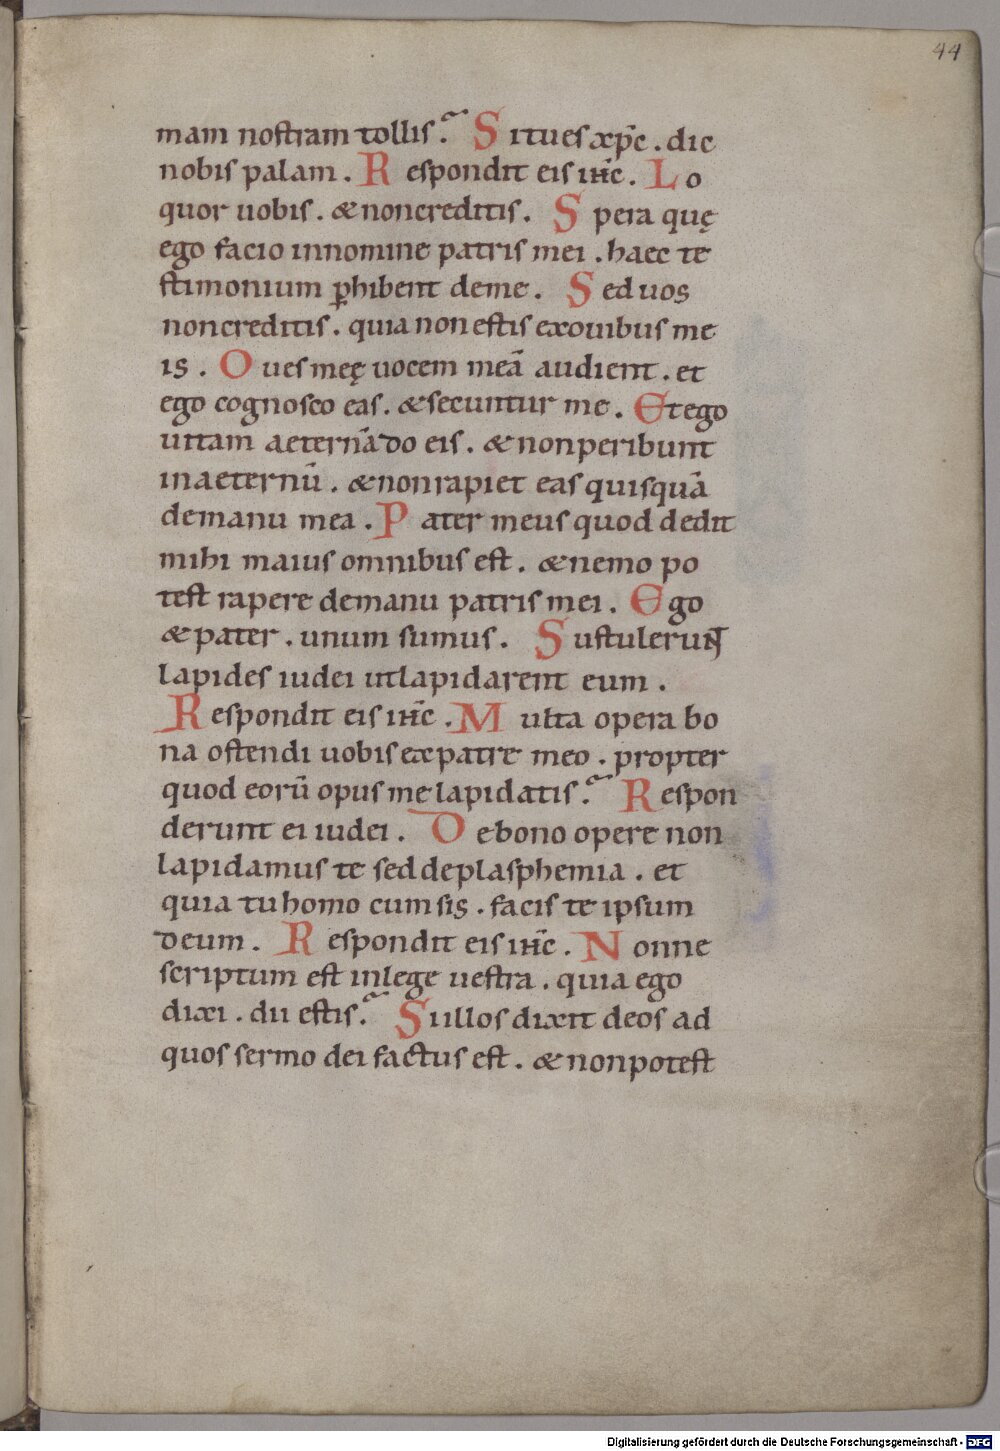 44
mam nostram tollis? Si tu es xp̄c . dic
nobis palam . Respondit eis ih̄c . Lo
quor uobis . & non creditis . Opera quę
ego facio in nomine patris mei . haec te
stimonium ꝑhibent de me . Sed uos
non creditis . quia non estis ex ouibus me
is . Oues meę uocem meā audient . et
ego cognosco eas . & secuntur me . Et ego
uitam aeternā do eis . & non peribunt
in aeternū . & non rapiet eas quisquā
de manu mea . Pater meus quod dedit
mihi maius omnibus est . & nemo po
test rapere de manu patris mei . Ego
& pater . unum sumus . Sustulerunt
lapides iudei ut lapidarent eum .
Respondit eis ih̄c . Multa opera bo
na ostendi uobis ex patre meo . propter
quod eorū opus me lapidatis? Respon
derunt ei iudei . De bono opere non
lapidamus te sed de plasphemia . et
quia tu homo cum sis . facis te ipsum
deum . Respondit eis ih̄c . Nonne
scriptum est in lege uestra . quia ego
dixi . dii estis? Si illos dixit deos ad
quos sermo dei factus est . & non potest
Digitalisierung gefördert durch die Deutsche Forschungsgemeinschaft - DFG